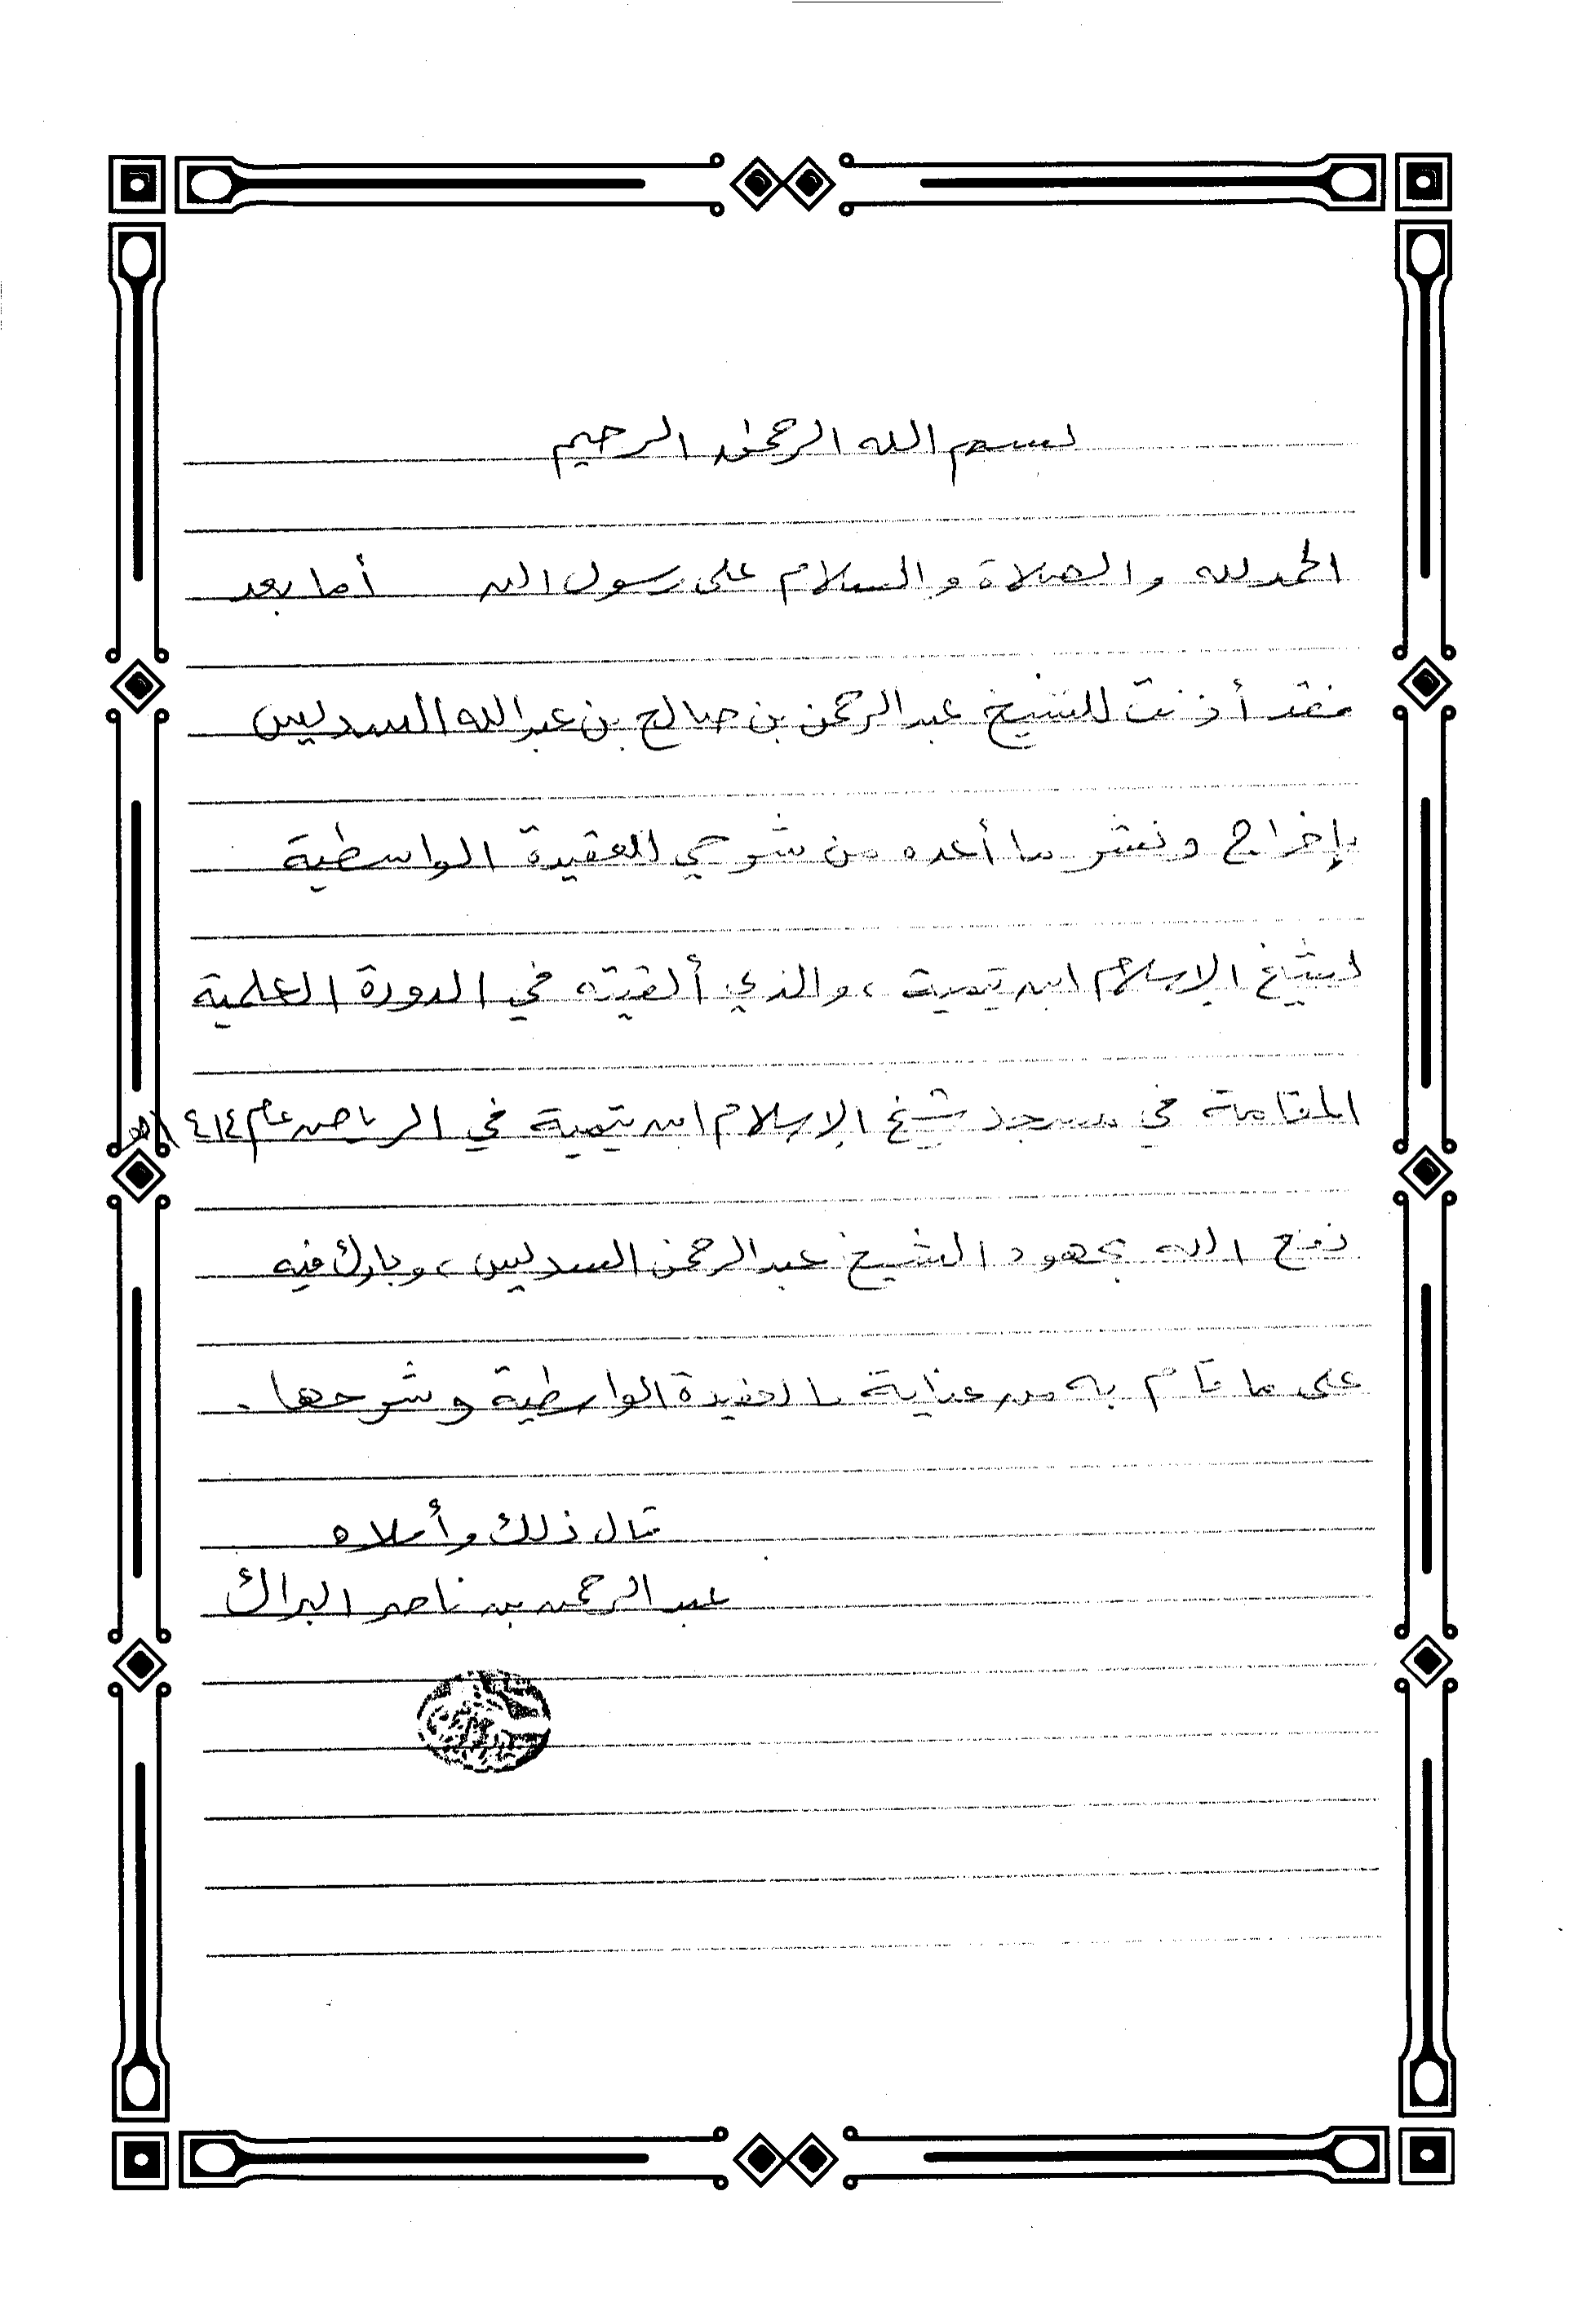 بسم الله الرحمن الرحيم
الحمد لله والصلاة والسلام على رسول الله أما بعد
فقد أذنت للشيخ عبدالرحمن بن صالح بن عبدالله السديس
بإخراج ونشر ما أعده من شرحي للعقيدة الواسطية
لشيخ الإسلام ابن تيمية، والذي ألقيته في الدورة العلمية
المقامة في مسجد شيخ الإسلام ابن تيمية في الرياض عام ١٤١٤هـ
نفع الله بجهود الشيخ عبدالرحمن السديس، وبارك فيه
على ما قام به من عناية بالعقيدة الواسطية وشروحها.
قال ذلك وأملاه
عبدالرحمن بن ناصر البراك